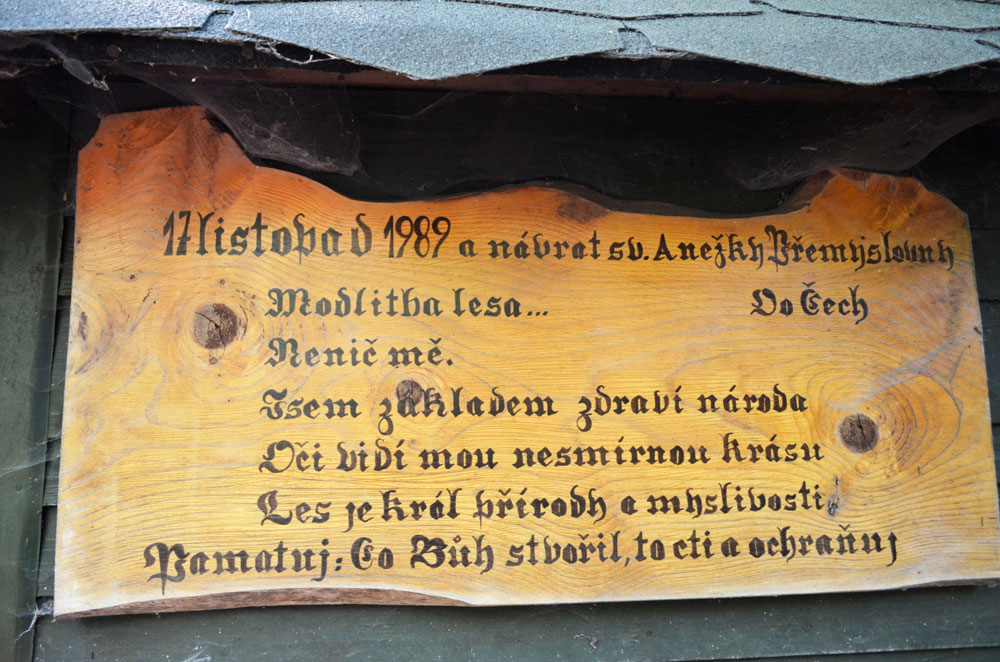 17listopad 1989 a návrat sv. Anežky Přemyslovny
Modlitba lesa... Do Čech
Nenič mě.
Jsem základem zdraví národa
Oči vidí mou nesmírnou krásu
Les je král přírody a myslivosti
Pamatuj: Co Bůh stvořil, to cti a ochraňuj